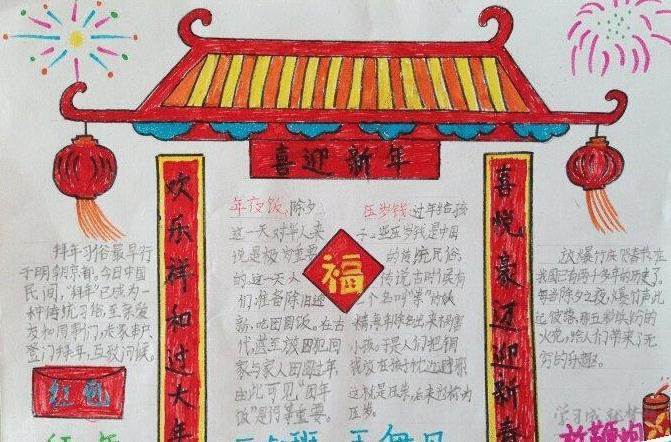 喜迎新年
欢乐祥和过大年
喜悦豪迈迎新春
福
年夜饭,除夕
这一天对华人来
说是极为重要
的.这一天人
们准备除旧迎
新,吃团圆饭。在古
代,甚至放囚犯回
家与家人团圆过年,
由此可见“团年
饭”是何等重要。
压岁钱,过年给孩
子一些压岁钱是中国
的传统民俗
传说古时候有
一个名叫“祟”的妖
小孩,于是人们把铜
压岁。
拜年习俗最早行
于明朝京都,今日中国
民间,“拜年”已成为一
种传统习俗,至亲爱
友和同事门,老家串户
登门拜年,互致问候。
放爆竹庆贺春节在
我国已有两千多年的历史了。
每当除夕之夜,爆竹声此
起彼落,那五彩缤纷的
火花,给人们带来了无
穷的乐趣。
红包